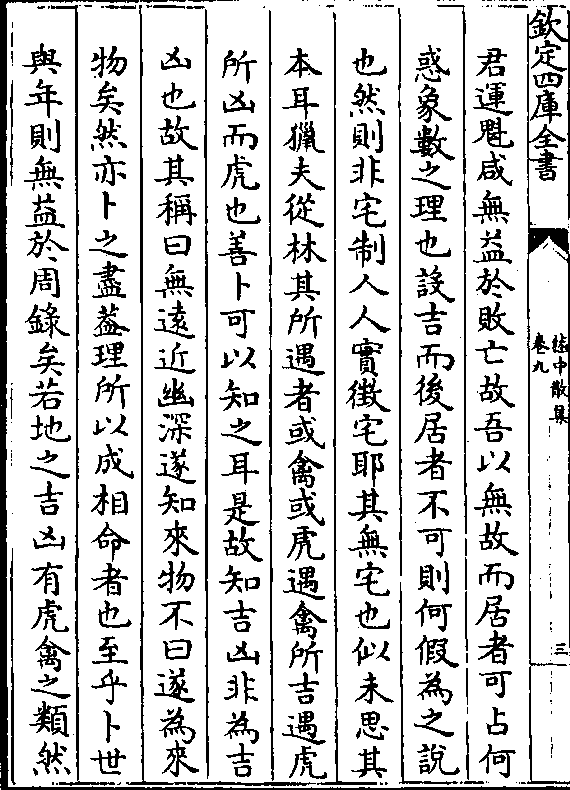 欽定四庫全書
嵇中散集
卷九
三
君運魁咸無益於敗亡故吾以無故而居者可占何
惑象數之理也設吉而後居者不可則何假為之說
也然則非宅制人人實徴宅耶其無宅也似未思其
本耳獵夫從林其所遇者或禽或虎遇禽所吉遇虎
所凶而虎也善卜可以知之耳是故知吉凶非為吉
凶也故其稱曰無遠近幽深遂知來物不曰遂為來
物矣然亦卜之盡葢理所以成相命者也至乎卜世
與年則無益於周錄矣若地之吉凶有虎禽之類然